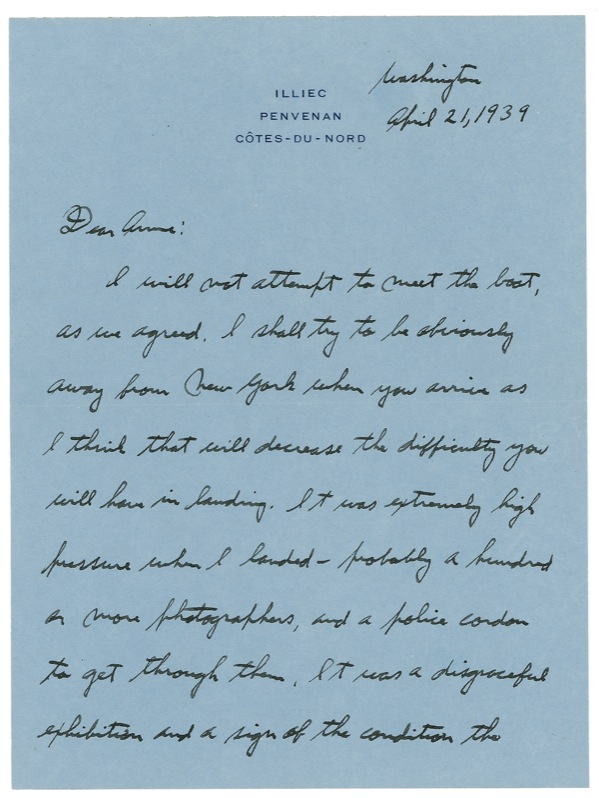 ILLIEC
PENVENAN
CÔTES-DU-NORD
Washington
April 21, 1939
Dear Anne:
I will not attempt to meet the boat,
as we agreed. I shall try to be obviously
away from New York when you arrive as
I think that will decrease the difficulty you
will have in landing. It was extremely high
pressure when I landed – probably a hundred
or more photographers, and a police cordon
to get through them. It was a disgraceful
exhibition and a sign of the condition the